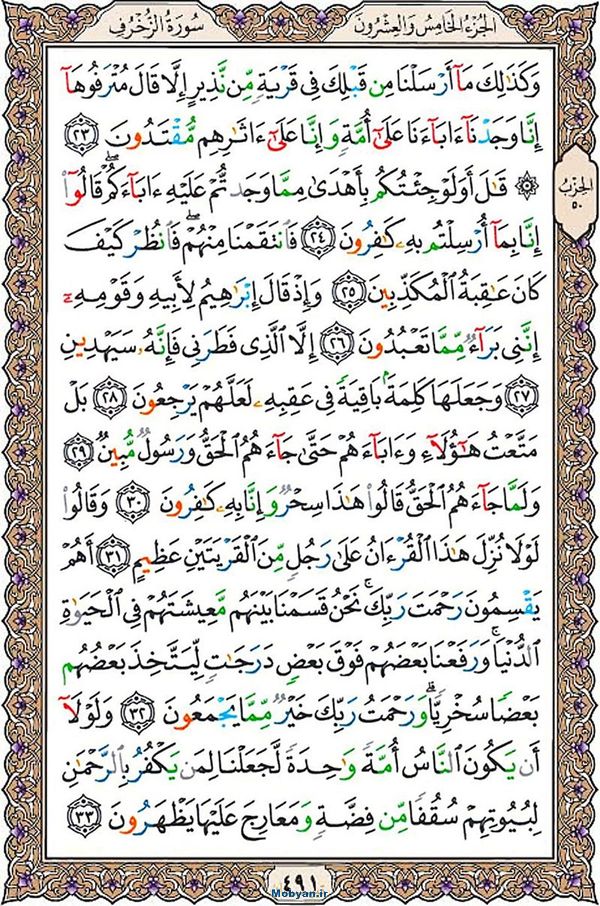 الجزء الخامس والعشرون
سورة الزخرف
وَكَذَٰلِكَ مَآ أَرْسَلْنَا مِن قَبْلِكَ فِى قَرْيَةٍ مِّن نَّذِيرٍ إِلَّا قَالَ مُتْرَفُوهَآ
إِنَّا وَجَدْنَآ ءَابَآءَنَا عَلَىٰٓ أُمَّةٍ وَإِنَّا عَلَىٰٓ ءَاثَٰرِهِم مُّقْتَدُونَ ٢٣
الحزب
٥٠
۞ قَٰلَ أَوَلَوْ جِئْتُكُم بِأَهْدَىٰ مِمَّا وَجَدتُّمْ عَلَيْهِ ءَابَآءَكُمْ ۖ قَالُوٓا۟
إِنَّا بِمَآ أُرْسِلْتُم بِهِۦ كَٰفِرُونَ ٢٤ فَٱنتَقَمْنَا مِنْهُمْ ۖ فَٱنظُرْ كَيْفَ
كَانَ عَٰقِبَةُ ٱلْمُكَذِّبِينَ ٢٥ وَإِذْ قَالَ إِبْرَٰهِيمُ لِأَبِيهِ وَقَوْمِهِۦٓ
إِنَّنِى بَرَآءٌ مِّمَّا تَعْبُدُونَ ٢٦ إِلَّا ٱلَّذِى فَطَرَنِى فَإِنَّهُۥ سَيَهْدِينِ
٢٧ وَجَعَلَهَا كَلِمَةًۢ بَاقِيَةً فِى عَقِبِهِۦ لَعَلَّهُمْ يَرْجِعُونَ ٢٨ بَلْ
مَتَّعْتُ هَٰٓؤُلَآءِ وَءَابَآءَهُمْ حَتَّىٰ جَآءَهُمُ ٱلْحَقُّ وَرَسُولٌ مُّبِينٌ ٢٩
وَلَمَّا جَآءَهُمُ ٱلْحَقُّ قَالُوا۟ هَٰذَا سِحْرٌ وَإِنَّا بِهِۦ كَٰفِرُونَ ٣٠ وَقَالُوا۟
لَوْلَا نُزِّلَ هَٰذَا ٱلْقُرْءَانُ عَلَىٰ رَجُلٍ مِّنَ ٱلْقَرْيَتَيْنِ عَظِيمٍ ٣١ أَهُمْ
يَقْسِمُونَ رَحْمَتَ رَبِّكَ ۚ نَحْنُ قَسَمْنَا بَيْنَهُم مَّعِيشَتَهُمْ فِى ٱلْحَيَوٰةِ
ٱلدُّنْيَا ۚ وَرَفَعْنَا بَعْضَهُمْ فَوْقَ بَعْضٍ دَرَجَٰتٍ لِّيَتَّخِذَ بَعْضُهُم
بَعْضًا سُخْرِيًّا ۗ وَرَحْمَتُ رَبِّكَ خَيْرٌ مِّمَّا يَجْمَعُونَ ٣٢ وَلَوْلَآ
أَن يَكُونَ ٱلنَّاسُ أُمَّةً وَٰحِدَةً لَّجَعَلْنَا لِمَن يَكْفُرُ بِٱلرَّحْمَٰنِ
لِبُيُوتِهِمْ سُقُفًا مِّن فِضَّةٍ وَمَعَارِجَ عَلَيْهَا يَظْهَرُونَ ٣٣
٤٩١
Mobyan.ir